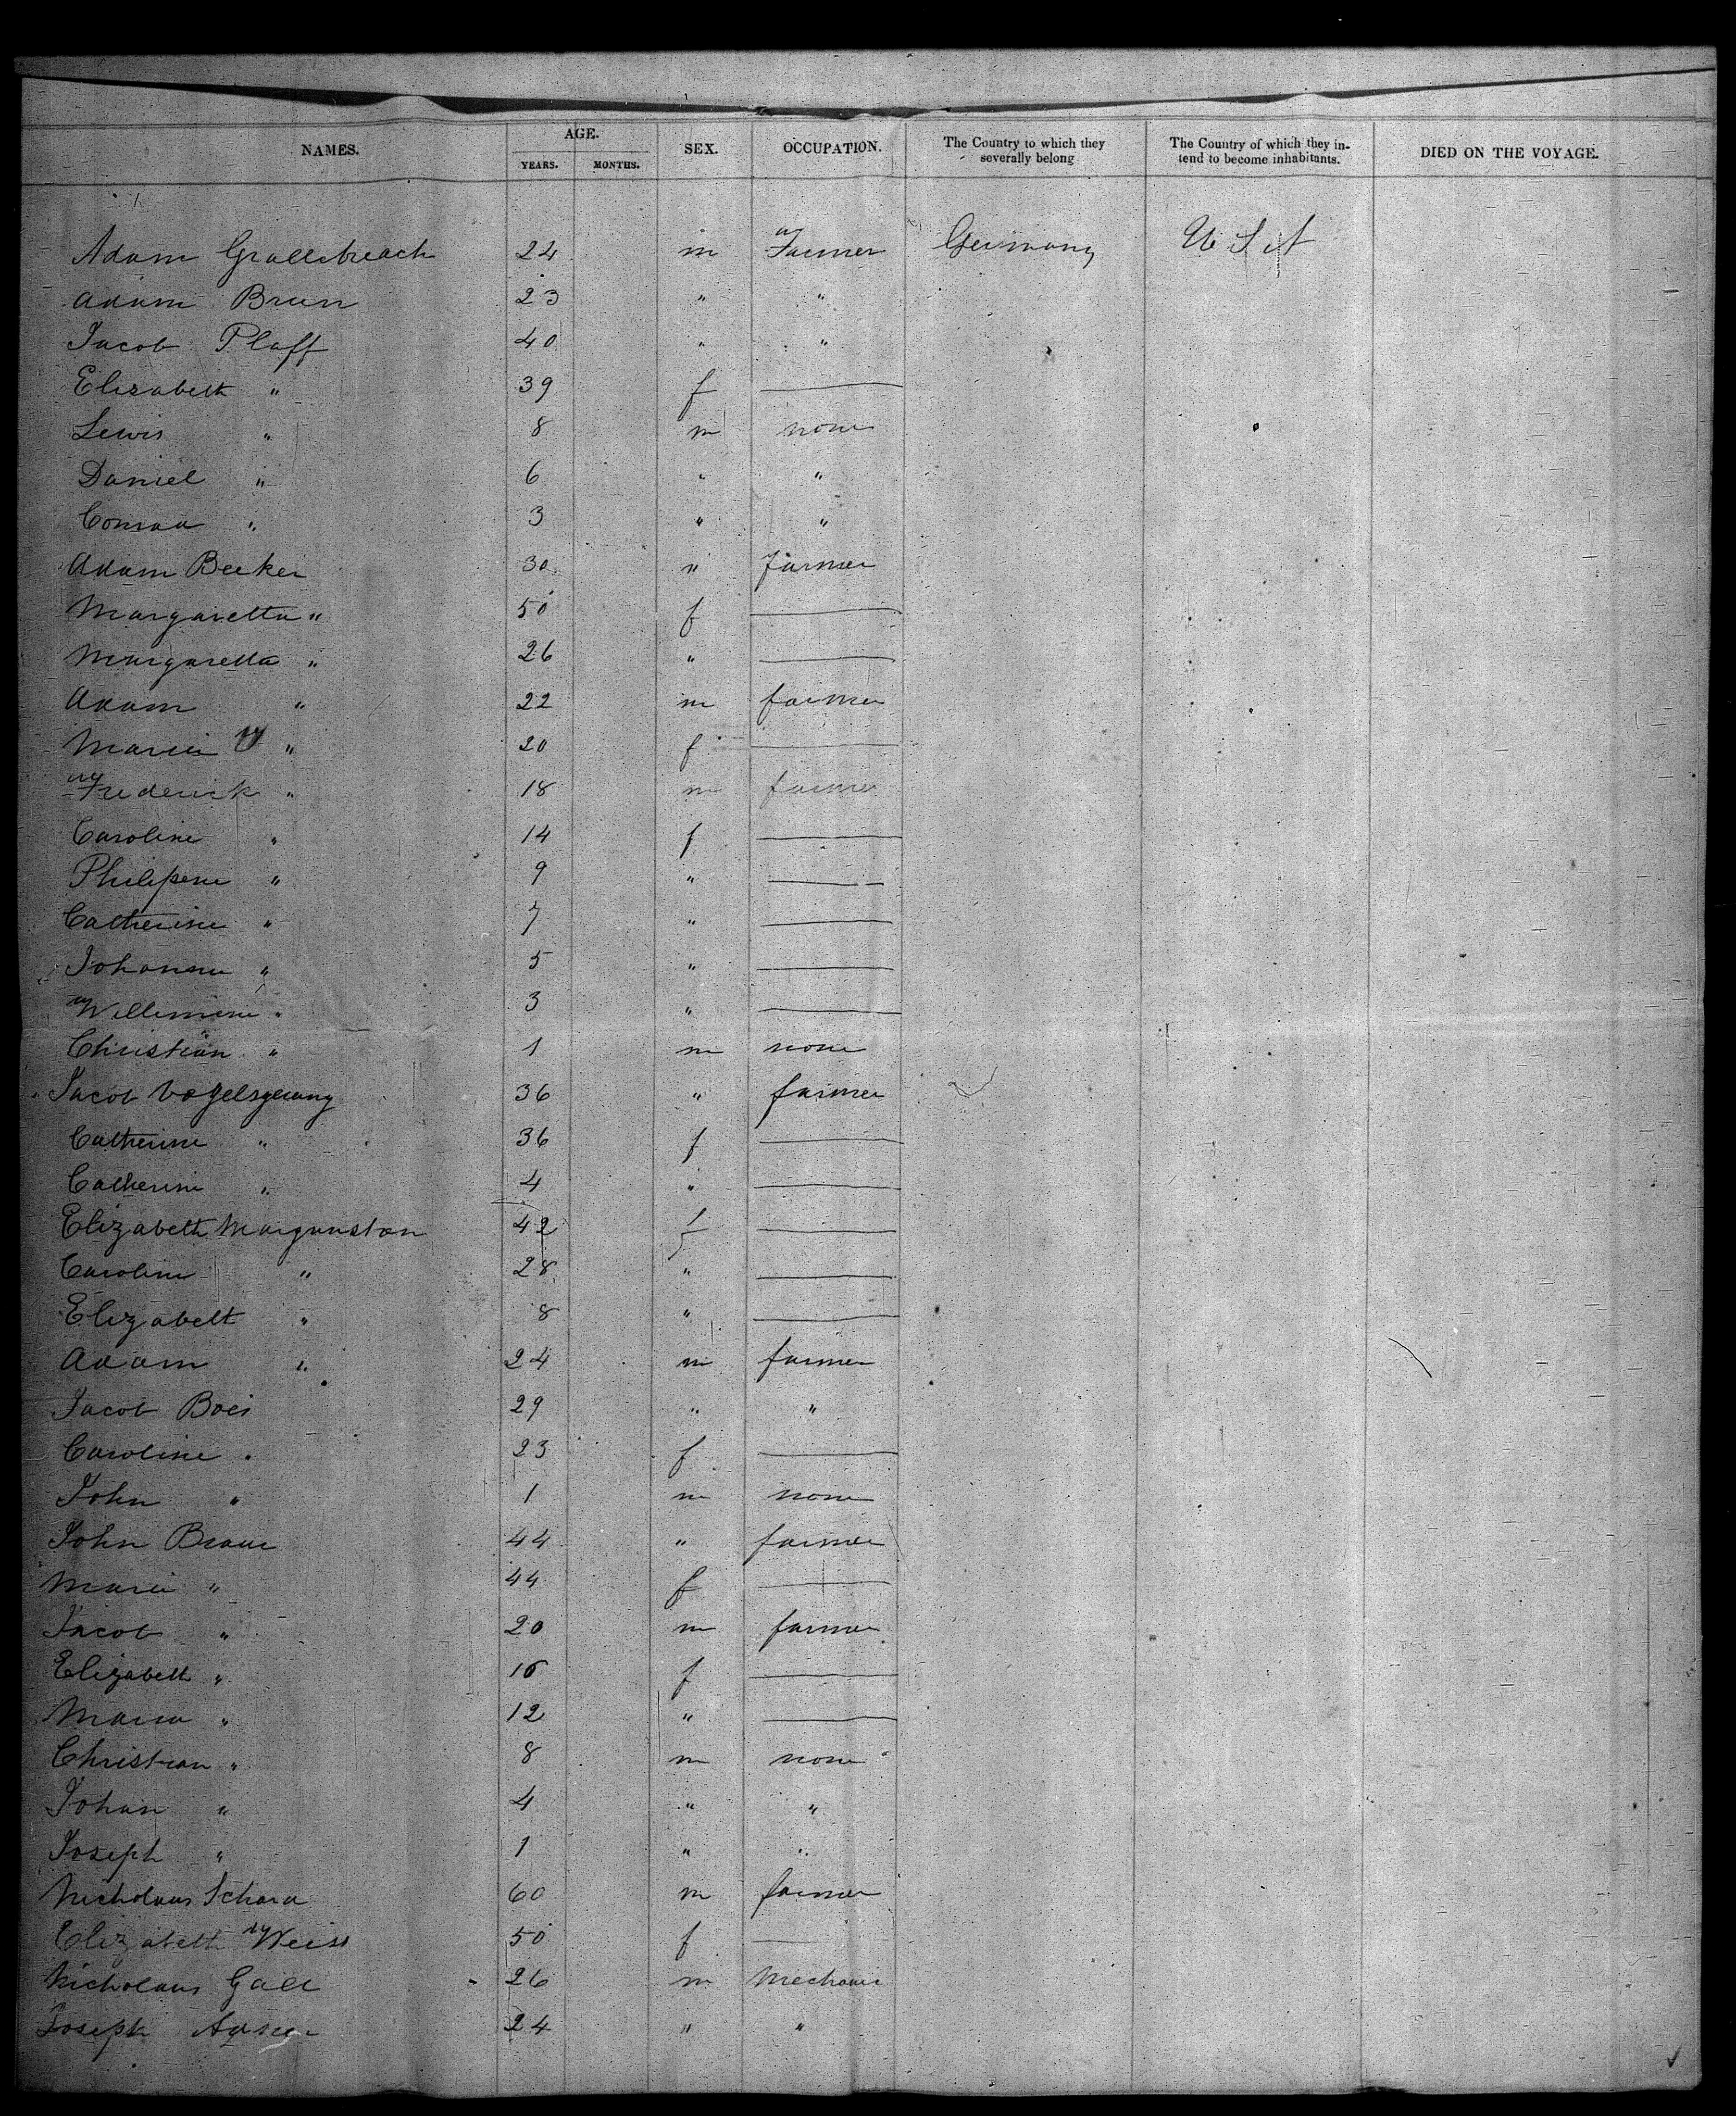 NAMES. AGE. YEARS. MONTHS. SEX. OCCUPATION. The Country to which they severally belong The Country of which they intend to become inhabitants. DIED ON THE VOYAGE.
Adam Grallebreach 24 m Farmer Germany U S A
Adam Brun 23 " "
Jacob Plaff 40 " "
Elizabeth " 39 f
Lewis " 8 m none
Daniel " 6 " "
Conrad " 3 " "
Adam Becker 30 " farmer
Margaretta " 50 f
Margaretta " 26 "
Adam " 22 m farmer
Maria " 20 f
Frederick " 18 m farmer
Caroline " 14 f
Philipene " 9 "
Catherine " 7 "
Johanna " 5 "
Willemine " 3 "
Christian " 1 m none
Jacob Vogelsgesang 36 " farmer
Catherine " 36 f
Catherine " 4 "
Elizabeth Morgunston 42 f
Caroline " 28 "
Elizabeth " 8 "
Adam " 24 m farmer
Jacob Boes 29 " "
Caroline " 23 f
John " 1 m none
John Braun 44 " farmer
Maria " 44 f
Jacob " 20 m farmer
Elizabeth " 16 f
Maria " 12 "
Christian " 8 m none
Johan " 4 " "
Joseph " 1 " "
Nicholaus Schara 60 m farmer
Elizabeth Weiss 50 f
Nicholaus Gall 26 m Mechanic
Joseph 24 " "